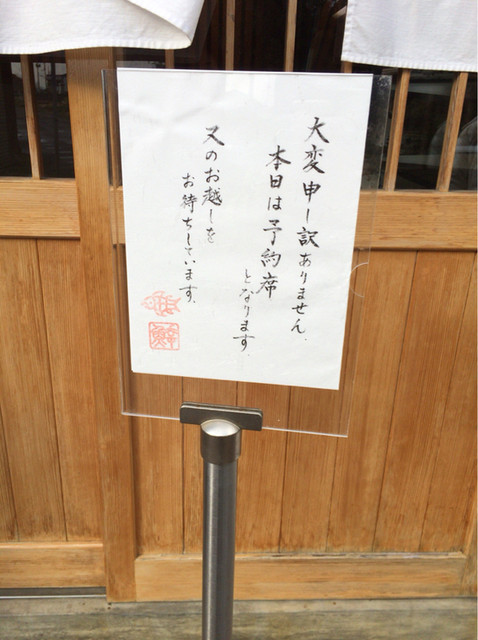 大変申し訳ありません、
本日は予約席
となります、
又のお越しを
お待ちしています、